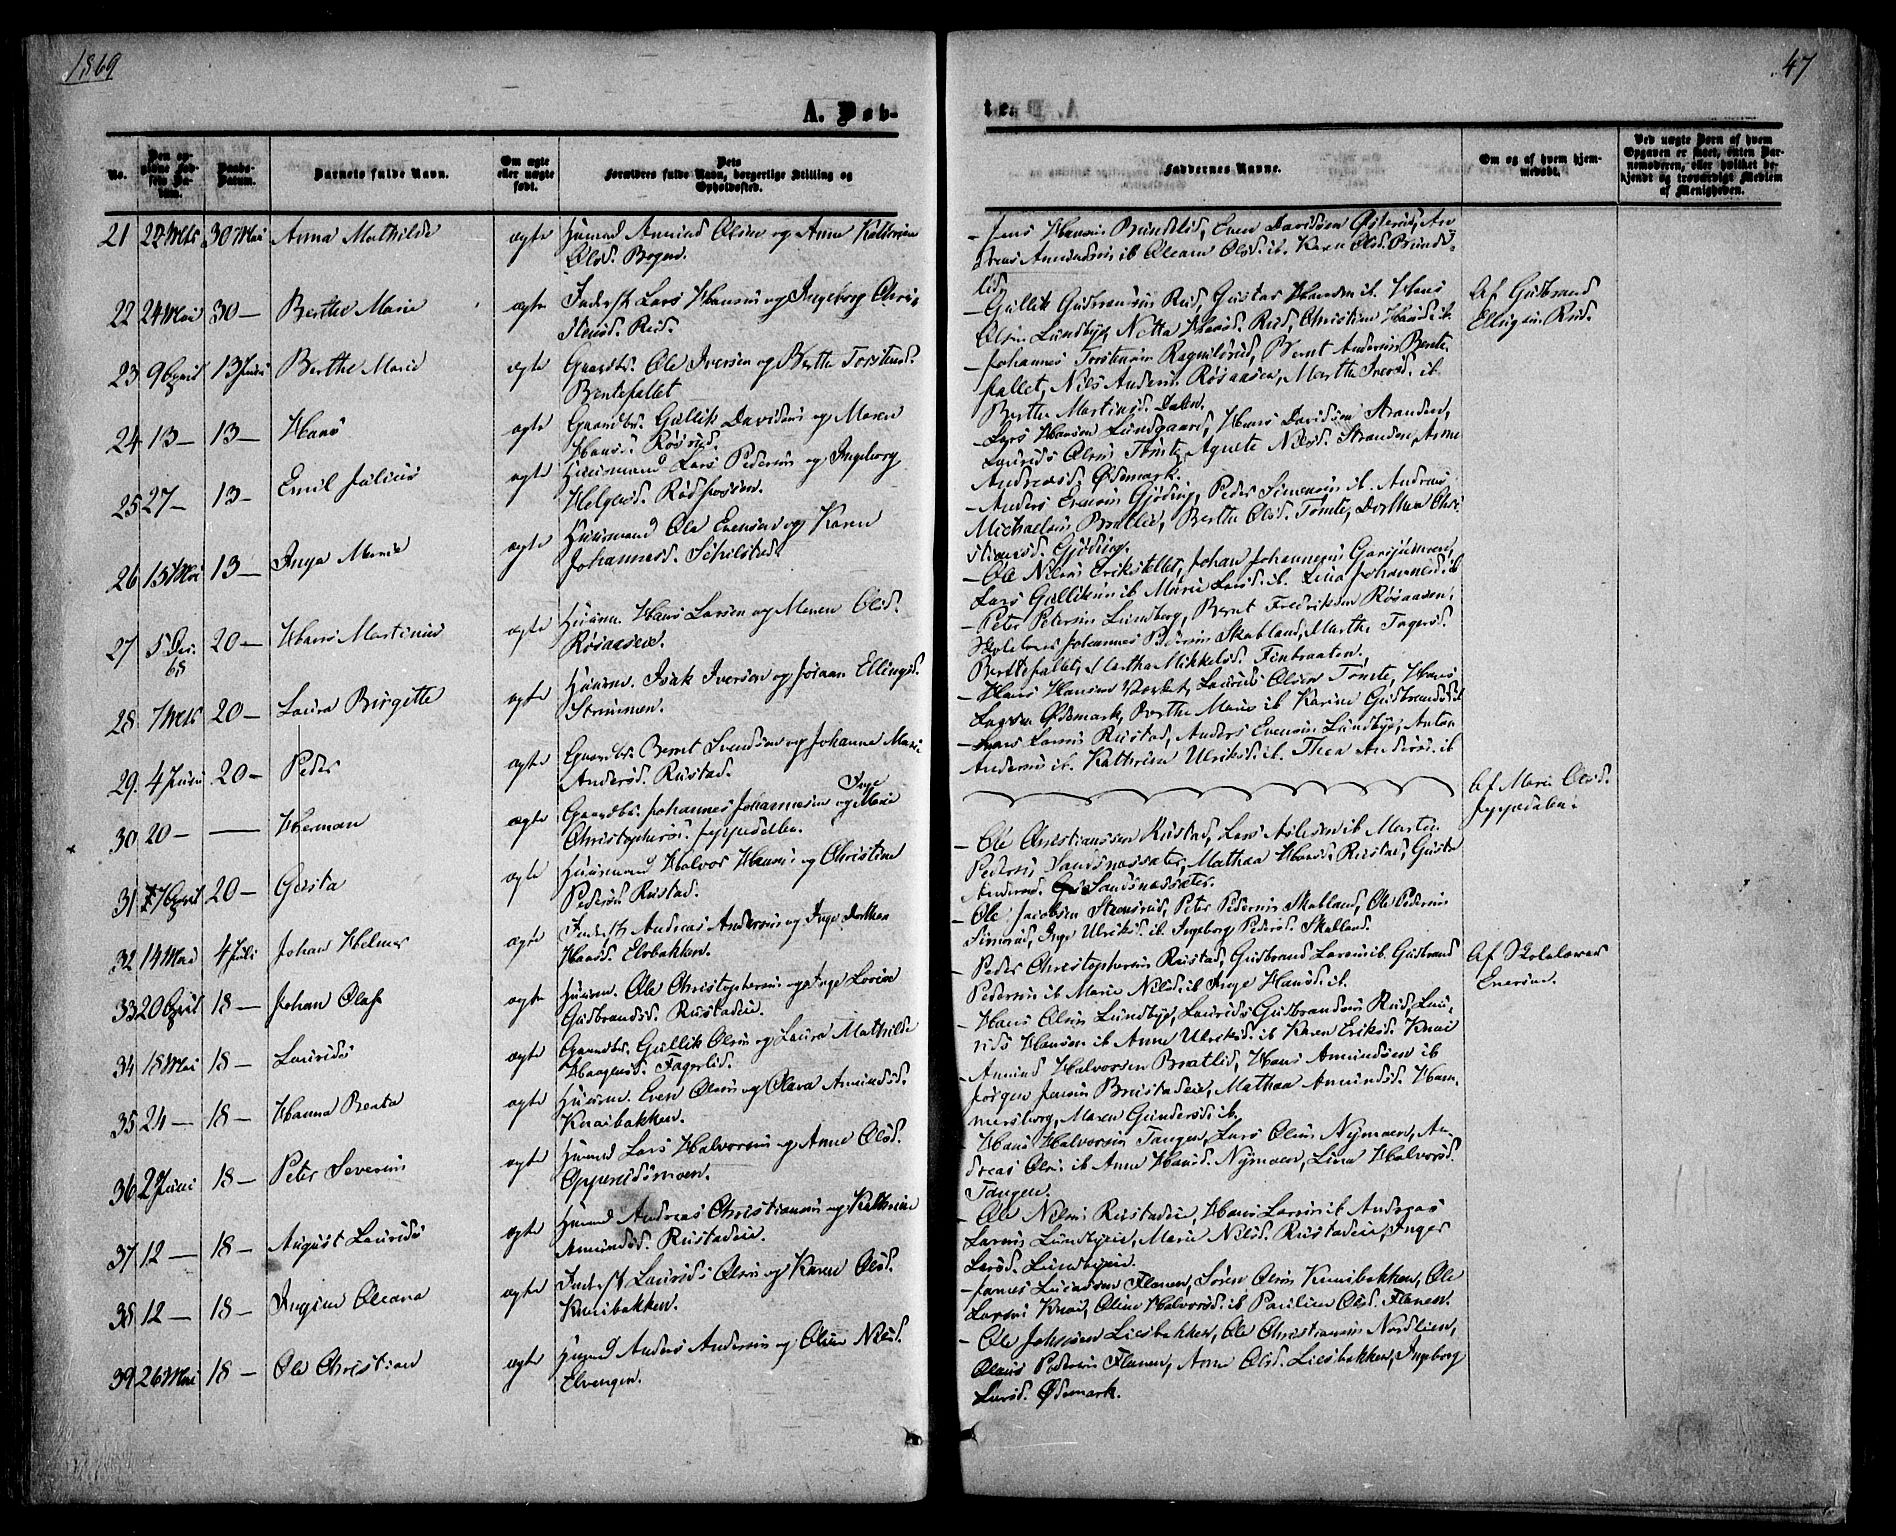 1869
47
A. Døb-
te.
No.
Den opgivne Fødsels Datum.
Daabs-Datum.
Barnets fulde Navn.
Om ægte eller uægte født.
Dets Forældres fulde Navn, borgerlige Stilling og Opholdssted.
Faddernes Navne.
Om og af hvem hjemmedøbt.
Ved uægte Børn af hvem Opgaven er skeet, enten Barnemoderen, eller hvilket bekjendt og troværdigt Medlem af Menigheden.
21 Mts 30 Mai Anna Mathilde ægte Huusmd Amund Olsen og Anne Kathrine
Olsd. Bogen.
Jens Hansen Brundslid, Even Davidsen Østerud, An-
dreas Amundsen ib Oleane Olsd. ib. Karen Olsd. Brunds-
lid
22 24 Mai 30 — Berthe Marie ægte Inderst Lars Hansen og Ingeborg Chri-
stensd. Rud.
— Gullik Gudbrandsen Rud, Gustav Hansen ib. Hans
Olsen Lundbye, Netta Rud, Christine Hansd. ib.
Af Gudbrand
Ellingsen Rud.
23 9 April 13 Juni Berthe Marie ægte Gaardbr. Ole Iversen og Berthe Torstensd.
Bentefallet
— Johannes Torstensen Ragnilsrud, Bernt Andersen Bente-
fallet, Nils Andersen Røsaasen, Marthe Iversd. ib
Berthe Martinsd. Dalen.
24 13 — 13 — Hans ægte Gaardbr. Gullik Davidsen og Maren
Hansd. Røsrud.
— Lars Hansen Lundgaard, Hans Davidsen Stranden,
Laurids Olsen Tomte, Agnete Nilsd. Stranden, Anne
Andreasd. Ødemark.
25 27 — 13 — Emil Julius ægte Huusmand Lars Pedersen og Ingeborg
Helgesd. Rødfossen.
— Anders Evensen Gjøding, Peder Simensen ib. Andreas
Michaelsen Bratlie, Berthe Olsd. Tomte, Dorthea Chri-
stiansd. Gjøding.
26 15 Mai 13 — Inga Marie ægte Huusmand Ole Evensen og Karen
Johannesd. Schilstad.
— Ole Nilsen Erikstellet, Johan Johannesen
Lars Gulliksen ib Marie Larsd. ib. Lina Johannesd. ib
27 5 Dec. 68 20 — Hans Martinius ægte Huusm. Hans Larsen og Maren Olsd.
Røsaasen.
— Peter Petersen Lundborg, Bernt Fredriksen Røsaasen,
Johannes Pedersen Skabland, Marthe
Bentefallet, Martha Mikkelsd. Finbraaten.
28 7 Mts 20 — Laura Birgitte ægte Huusm. Isak Iversen og Josaan Ellingsd.
Strømmen.
— Hans Hansen Værket, Laurids Olsen Tomte, Hans
Larsen Ødemark, Berthe Marie ib Karine Gudbrandsd. ib
29. 4 Juni 20 — Peder ægte Gaardbr. Bernt Svendsen og Johanne Marie
Andersd. Rustad.
— Lars Larsen Rustad, Anders Evensen Lundbye, Anton
Andersen ib. Kathrine Ulriksd. ib. Thea Andersd. ib
30 20 — — Herman ægte Gaardbr. Johannes Johannesen og Inge Marie
Christophersd. Jeppedalen.
Af Marie Olsd.
Jeppedalen.
31 17 April 20 — Gusta ægte Huusmand Halvor Hansen og Christine
Pedersd. Rustad.
— Ole Christianssen Rustad, Lars Aslesen ib Martin
Pedersen Sandsnæssæter, Mathea Hansd. Rustad, Gusta
Andersd. Sandsnæssæter.
32 14 Mai 4 Juli Johan Helmer ægte Inderst Andreas Andersen og Inge Dorthea
Hansd. Elvbakken.
— Ole Jacobsen Stensrud, Peter Pedersen Skabland, Ole Pedersen
Simesrud, Inge Ulriksd. ib. Ingeborg Pedersd. Skabland.
33 20 April 18 — Johan Olaf ægte Huusm. Ole Christophersen og Inge Lovise
Gudbrandsd. Rustadeie.
— Peder Christophersen Rustad, Gudbrand Larsen ib. Gudbrand
Pedersen ib Marie Nilsd. ib Inge Hansd. ib.
Af Skolelærer
Enersen.
34 18 Mai 18 — Laurids ægte Gaardbr. Gullik Olsen og Laura Mathilde
Haagensd. Fagerlid.
— Hans Olsen Lundbye, Laurids Gudbrandsen Rud, Lau-
rids Hansen ib Anne Ulriksd. ib Karen Eriksd. Knai
35 24 — 18 — Hanna Beata ægte Huusm. Even Olsen og Olava Amundsd.
Knaibakken.
— Amund Halvorsen Bratlid, Hans Amundsen ib
Jørgen Jensen Brustadeie, Mathea Amundsd. Ham-
mersborg, Maren Gundersd. ib.
36 2 Juni 18 — Peter Severin ægte Huusmd Lars Halvorsen og Anne Olsd.
Oppundsmoen.
Hans Halvorsen Tangen, Lars Olsen Nymoen, An-
dreas Olsen ib Anne Hansd. Nymoen, Lina Halvorsd.
Tangen.
37 12 — 18 — August Laurids ægte Huusmd Andreas Christiansen og Kathrine
Amundsd. Rustadeie.
— Ole Nilsen Rustadeie, Hans Larsen ib Andreas
Larsen Lundbyeie, Marie Nilsd. Rustadeie, Inger
Larsd. Lundbyeie.
38 12 — 18 — Ingine Oleana ægte Inderst Laurids Olsen og Karen Olsd.
Knaibakken.
Flanen, Søren Olsen Knaibakken, Ole
Larsen Knai, Oline Halvorsd. ib Pauline Olsd. Flanen.
39 26 Mai 18 — Ole Christian ægte Huusmd Anders Andersen og Oline Nilsd.
Elvengen.
— Ole Johnsen Liesbakken, Ole Christiansen Nordlien,
Olaus Pedersen Flanen, Anne Olsd. Liesbakken, Ingeborg
Larsd. Ødemark.